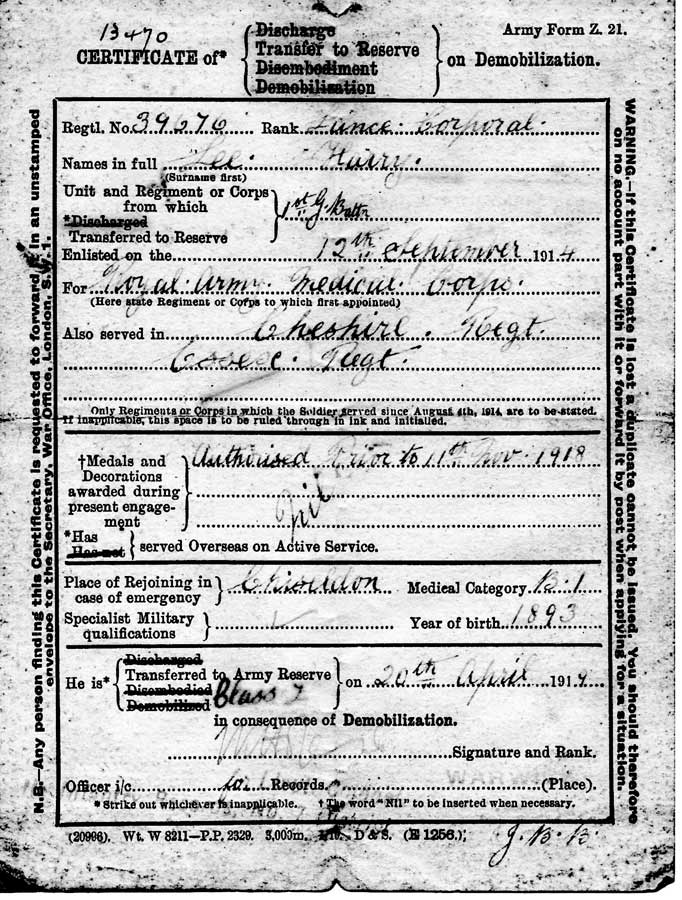 13470
Army Form Z. 21.
CERTIFICATE of* { Discharge
Transfer to Reserve
Disembodiment
Demobilization } on Demobilization.
Regtl. No. 39676 Rank Lance Corporal
Names in full Lee Harry.
(Surname first)
Unit and Regiment or Corps
from which
*Discharged
Transferred to Reserve } 1st G. Battn
Enlisted on the 12th September 1914
For Royal Army Medical Corps.
(Here state Regiment or Corps to which first appointed)
Also served in Cheshire Regt.
Essex Regt.
Only Regiments or Corps in which the Soldier served since August 4th, 1914, are to be stated.
If inapplicable, this space is to be ruled through in ink and initialled.
†Medals and
Decorations
awarded during
present engage-
ment } Authorised Prior to 11th Nov. 1918
Nil
*Has
Has not } served Overseas on Active Service.
Place of Rejoining in
case of emergency } Chiseldon Medical Category B.1
Specialist Military
qualifications } Year of birth 1893
He is* { Discharged
Transferred to Army Reserve
Disembodied Class Z
Demobilized } on 20th April 1919
in consequence of Demobilization.
Signature and Rank.
Officer i/c Records. (Place).
* Strike out whichever is inapplicable. † The word "Nil" to be inserted when necessary.
(20996). Wt. W 8211—P.P. 2329. 3,000m. 1/19. D & S. (E 1256.)
J. B. B.
N.B.—Any person finding this Certificate is requested to forward it in an unstamped
envelope to the Secretary, War Office, London, S.W. 1.
WARNING.—If this Certificate is lost a duplicate cannot be issued. You should therefore
on no account part with it or forward it by post when applying for a situation.